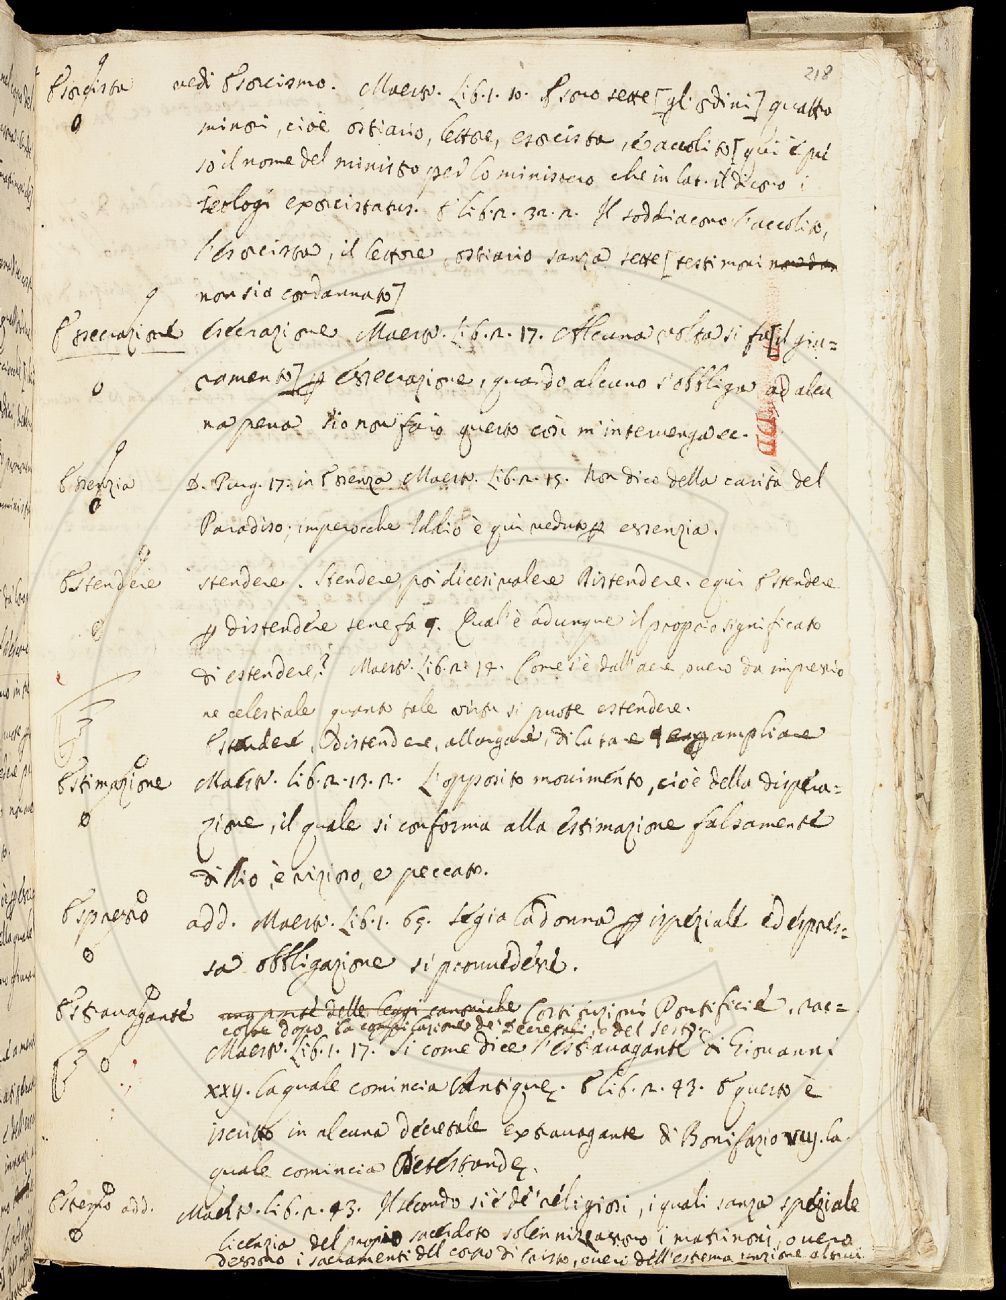 218
Esorcista vedi Esorcismo. Maestr. Lib. 1. 10. Esono sette [gli ordini] quattro
minori, cioè ostiario, lettore, esorcista, e accolito [qui è pre
so il nome del ministro per lo ministero che in lat. il dicono i
Teologi exorcistatus. E lib. 2. 32. 2. Il soddiacono, l'accolito,
l'esorcista, il lettore, ostiario sanza sette [testimoni non dan
non sia condannato]
Essecrazione Esecrazione Maestr. Lib. 2. 17. Alcuna volta si fa [il giu=
ramento] per esecrazione, quando alcuno s'obbliga ad alcu
na pena s'io non fo io questo così m'intervenga ec.
Essenzia D. Purg. 17. in Essenza Maestr. Lib. 2. 15. Non dico della carità del
Paradiso; imperocche Iddio è qui veduto per essenzia.
Estendere stendere. Stendere poi dicesi valere Distendere. e qui Estendere
per distendere se ne fa q. Qual'è adunque il proprio significato
di estendere? Maestr. Lib. 2. 14. Come s'è dall'aere, overo da impressio
ne celestiale quanto tale virtù si puote estendere.
Estendere, distendere, allargare, dilatare ampliare
Estimazione Maestr. Lib. 2. 13. 2. L'opposito movimento, cioè della dispera=
zione, il quale si conforma alla estimazione falsamente
di Dio, è vizioso, e peccato.
Espresso add. Maestr. Lib. 1. 65. Segia la donna per ispeziale ed espres=
sa obbligazione si provvedesse.
Estravagante una parte delle leggi canoniche Costituzioni Pontificie, rac=
colte dopo la compilazione de' Decretali, e del sesto.
Maestr. Lib. 1. 17. Si come dice l'estravagante di Giovanni
xxij. la quale comincia Antique. E lib. 2. 43. E questo è
iscritto in alcuna decretale extravagante di Bonifazio viij. la
quale comincia Detestande.
Estremo add. Maestr. Lib. 2. 43. Il secondo si è de' religiosi, i quali sanza speziale
licenzia del proprio sacerdote solennizzassoro i matrimoni, overo
dessono i sacramenti del corpo di Cristo, overo dell'estrema unzione altrui